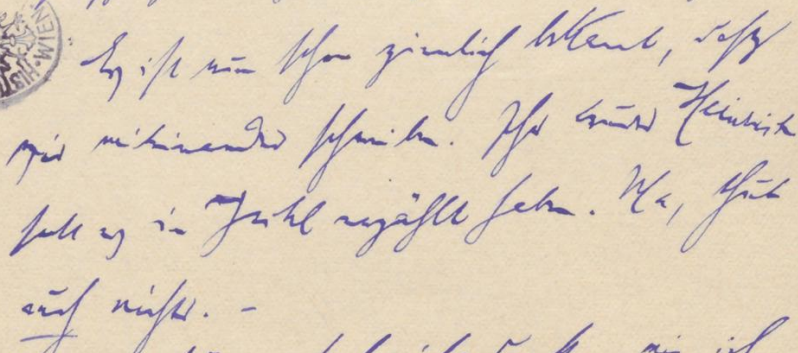 Es ist nun schon ziemlich bekannt, daß
wir miteinander schreiben. Ihr Bruder Heinrich
soll es in Ischl erzählt haben. Na, thut
auch nichts. –
WIEN